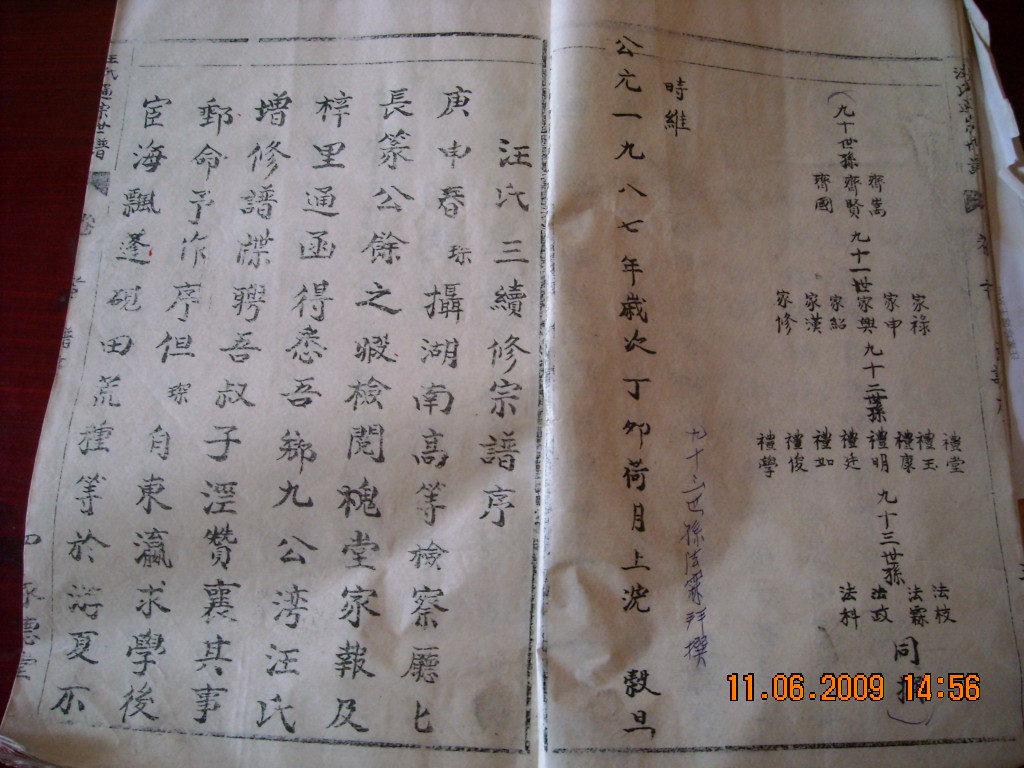 九十世孫
齊嵩
齊賢
齊國
九十一世
家祿
家申
家興
家紹
家漢
家修
九十二世孫
禮堂
禮玉
禮康
禮明
禮廷
禮如
禮俊
禮學
九十三世孫
法枝
法霖
法政
法科
同撰
時維
公元一九八七年歲次丁卯荷月上浣 穀旦
九十三世孫法霖拜撰
汪氏三續修宗譜序
庚申春琮攝湖南高等檢察廳匕
長篆公餘之暇檢閱槐堂家報及
梓里通函得悉吾鄉九公灣汪氏
增修譜牒聘吾叔子涇贊襄其事
郵命予作序但琮自東瀛求學後
宦海飄蓬硯田荒種等於游夏不
汪氏通宗世譜 卷
11.06.2009 14:56